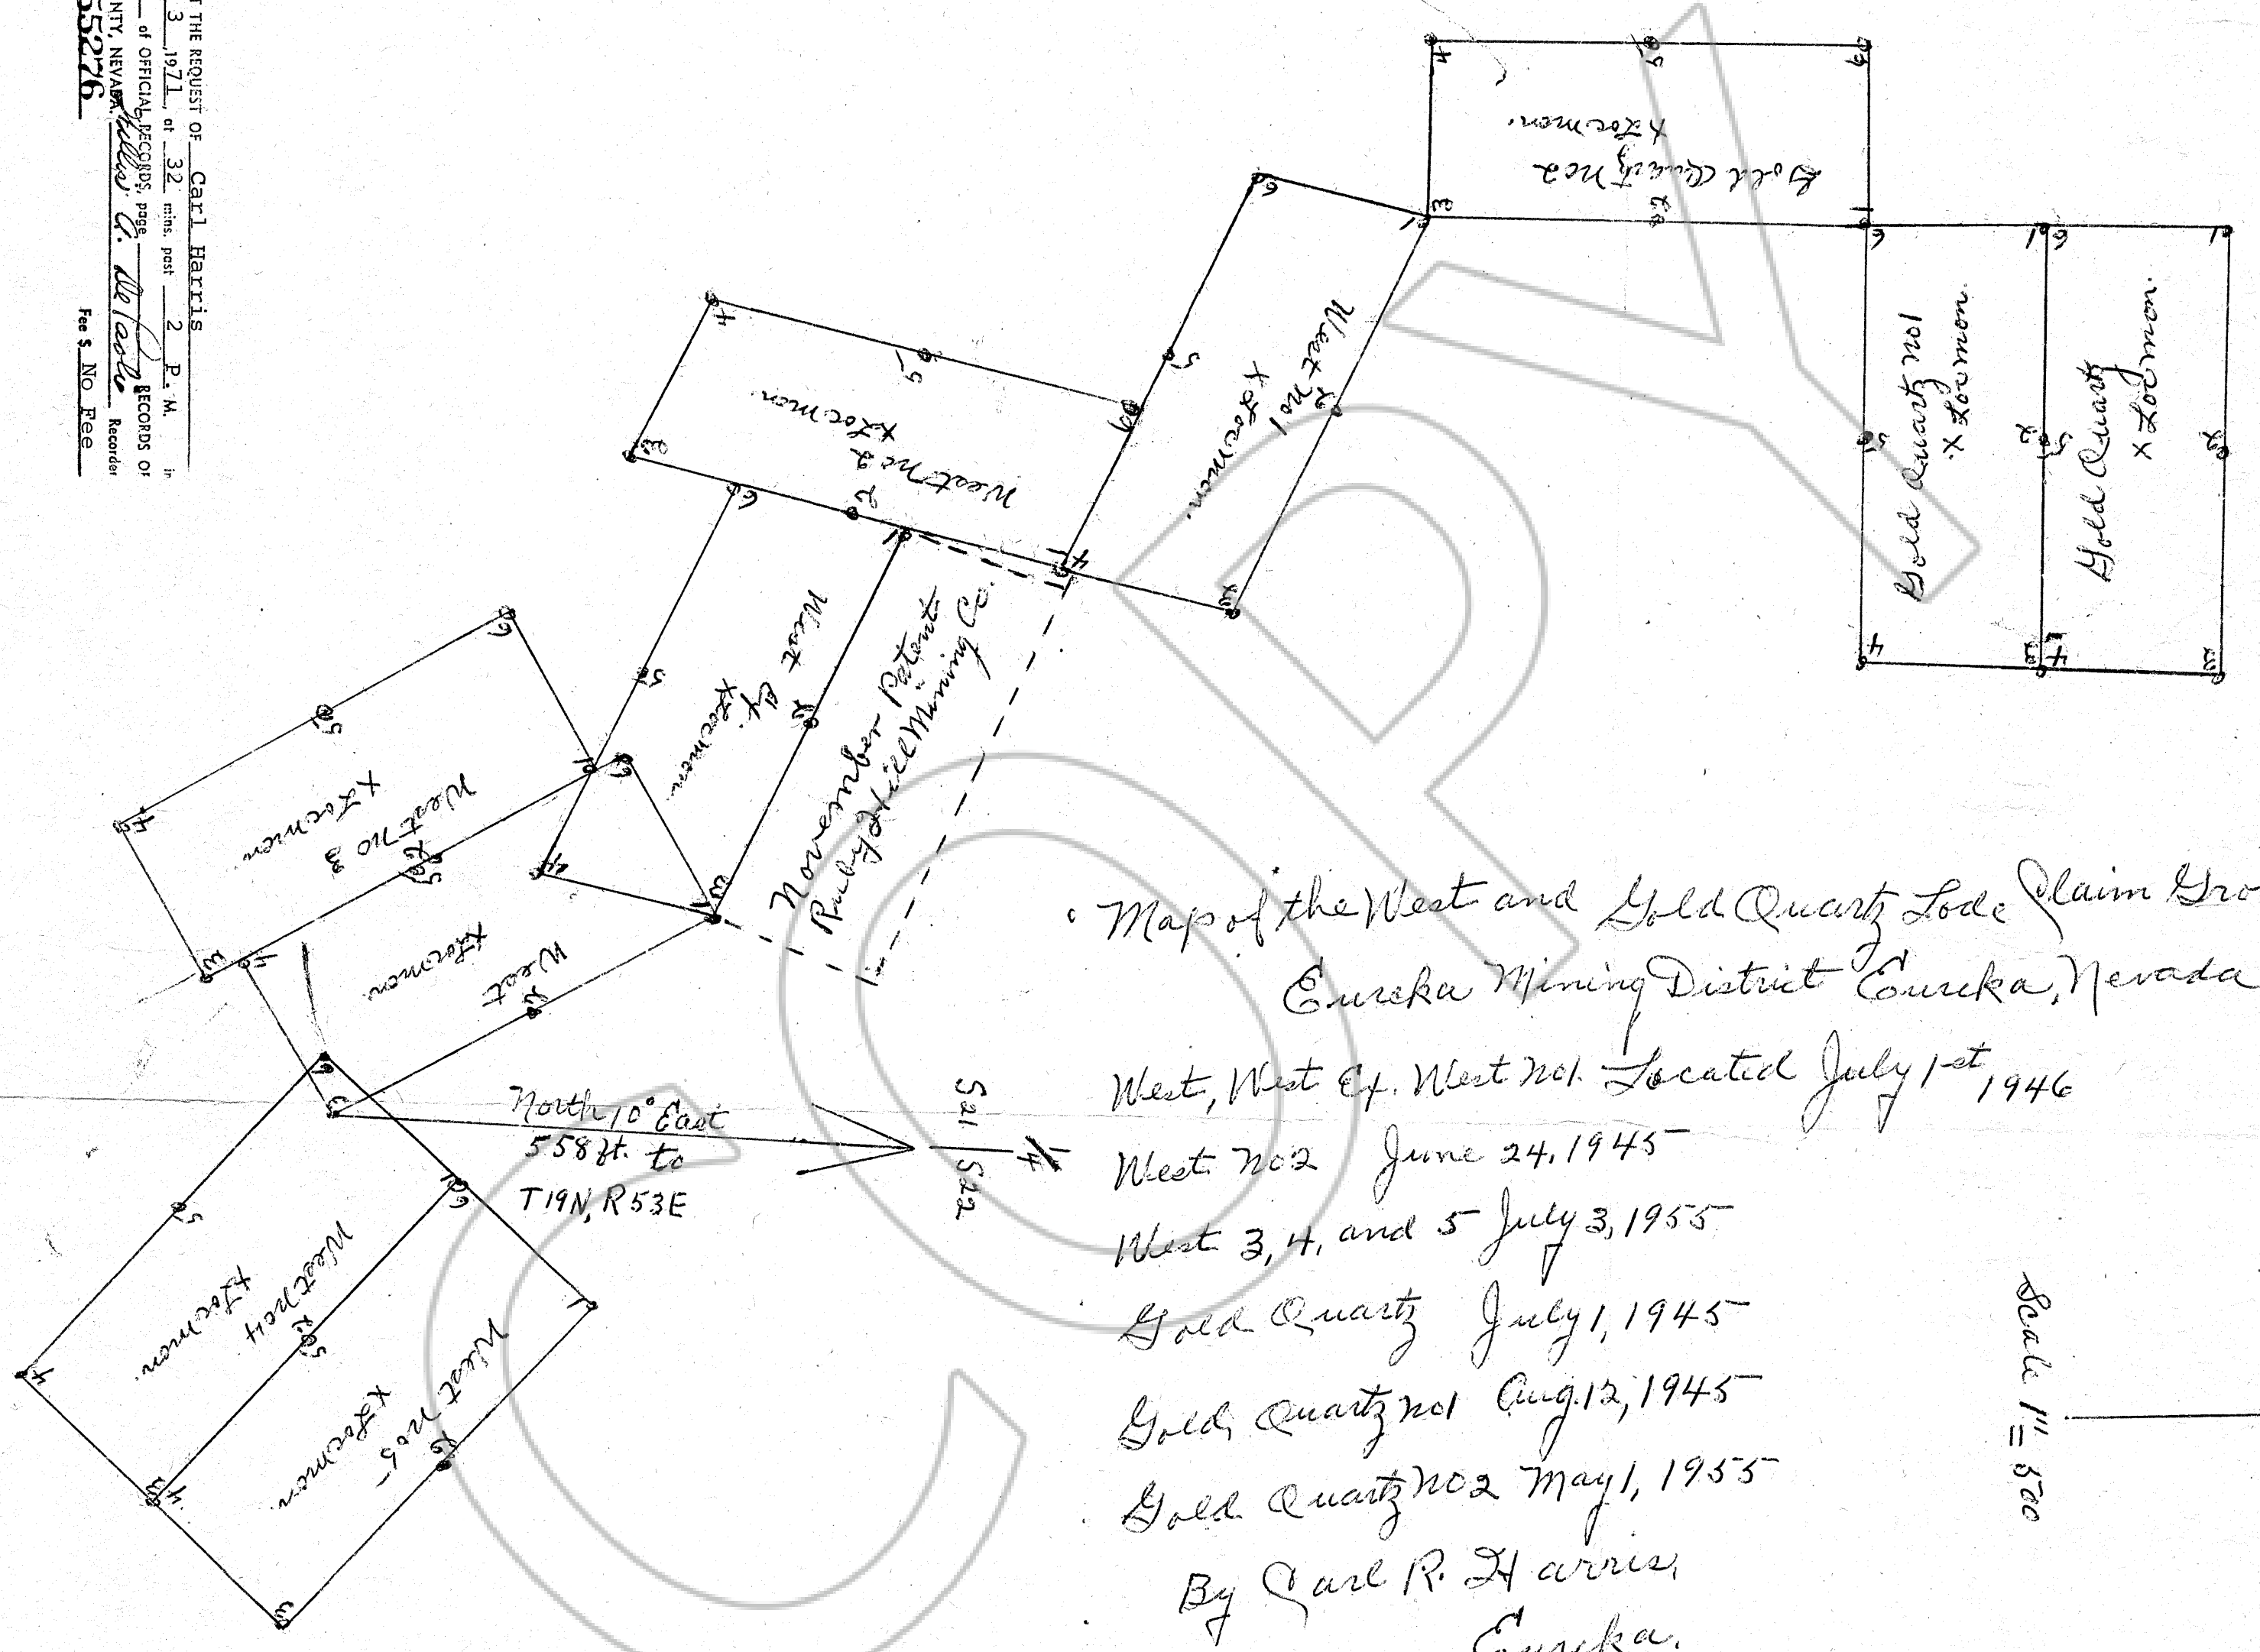 T THE REQUEST OF Carl Harris
3, 1971, at 32 mins. past 2 P. M. in
of OFFICIAL RECORDS, page RECORDS OF
NTY, NEVADA. Willis A. DePaoli Recorder
55276 Fee $ No Fee
Gold Quartz No2
x Loc mon.
Gold Quartz no1
x Loc mon.
Gold Quartz
x Loc mon.
West No1
x Loc mon.
West No2
x Loc mon.
West Ex.
x Loc mon.
November Patent
Ruby Hill Mining Co.
West No 3
x Loc mon.
West
x Loc mon.
West No4
x Loc mon.
West No5
x Loc mon.
North 10° East
558 ft. to
T19N, R53E
S21 S22
1/4
Map of the West and Gold Quartz Lode Claim Gro
Eureka Mining District Eureka, Nevada
West, West Ex. West No1. Located July 1st, 1946
West No2 June 24, 1945
West 3, 4, and 5 July 3, 1955
Gold Quartz July 1, 1945
Gold Quartz no1 Aug. 12, 1945
Gold Quartz NO2 May 1, 1955
By Carl R. Harris,
Eureka,
Scale 1" = 500
COPY